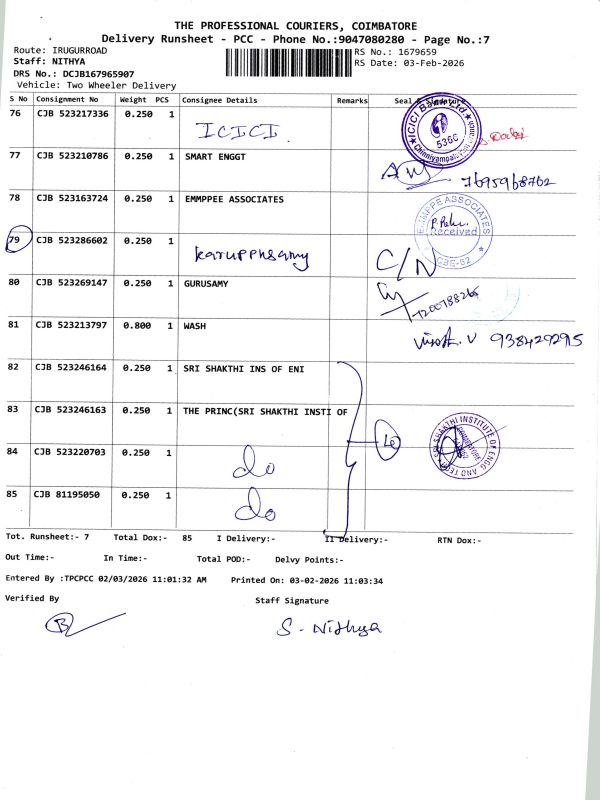 THE PROFESSIONAL COURIERS, COIMBATORE
Delivery Runsheet - PCC - Phone No.:9047080280 - Page No.:7
Route: IRUGURROAD
RS No.: 1679659
Staff: NITHYA
RS Date: 03-Feb-2026
DRS No.: DCJB167965907
Vehicle: Two Wheeler Delivery
S No Consignment No Weight PCS Consignee Details Remarks Seal & Signature
76 CJB 523217336 0.250 1 ICICI
ICICI Bank Ltd. 536C Chinniyampalayam
77 CJB 523210786 0.250 1 SMART ENGGT
7695968762
78 CJB 523163724 0.250 1 EMMPPEE ASSOCIATES
EMMPPE ASSOCIATES Received CBE-62
79 CJB 523286602 0.250 1 karuppusamy C/N
80 CJB 523269147 0.250 1 GURUSAMY
81 CJB 523213797 0.800 1 WASH
V 938429295
82 CJB 523246164 0.250 1 SRI SHAKTHI INS OF ENI
83 CJB 523246163 0.250 1 THE PRINC(SRI SHAKTHI INSTI OF
SRI SHAKTHI INSTITUTE OF ENGG AND TECH
84 CJB 523220703 0.250 1 do
85 CJB 81195050 0.250 1 do
Tot. Runsheet:- 7 Total Dox:- 85 I Delivery:- II Delivery:- RTN Dox:-
Out Time:- In Time:- Total POD:- Delvy Points:-
Entered By :TPCPCC 02/03/2026 11:01:32 AM Printed On: 03-02-2026 11:03:34
Verified By Staff Signature
B
S. Nithya